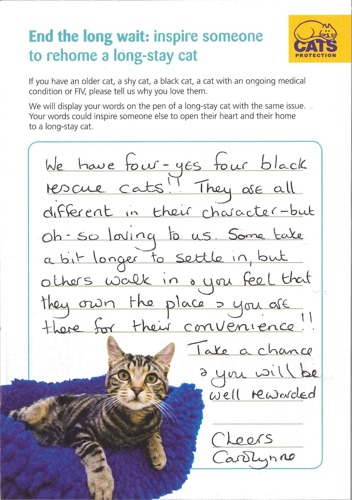 End the long wait: inspire someone
to rehome a long-stay cat
CATS
PROTECTION
If you have an older cat, a shy cat, a black cat, a cat with an ongoing medical
condition or FIV, please tell us why you love them.
We will display your words on the pen of a long-stay cat with the same issue.
Your words could inspire someone else to open their heart and their home
to a long-stay cat.
We have four-yes four black
rescue cats!! They are all
different in their character-but
oh-so loving to us. Some take
a bit longer to settle in, but
others walk in & you feel that
they own the place & you are
there for their convenience!!
Take a chance
& you will be
well rewarded
Cheers
Carolynne